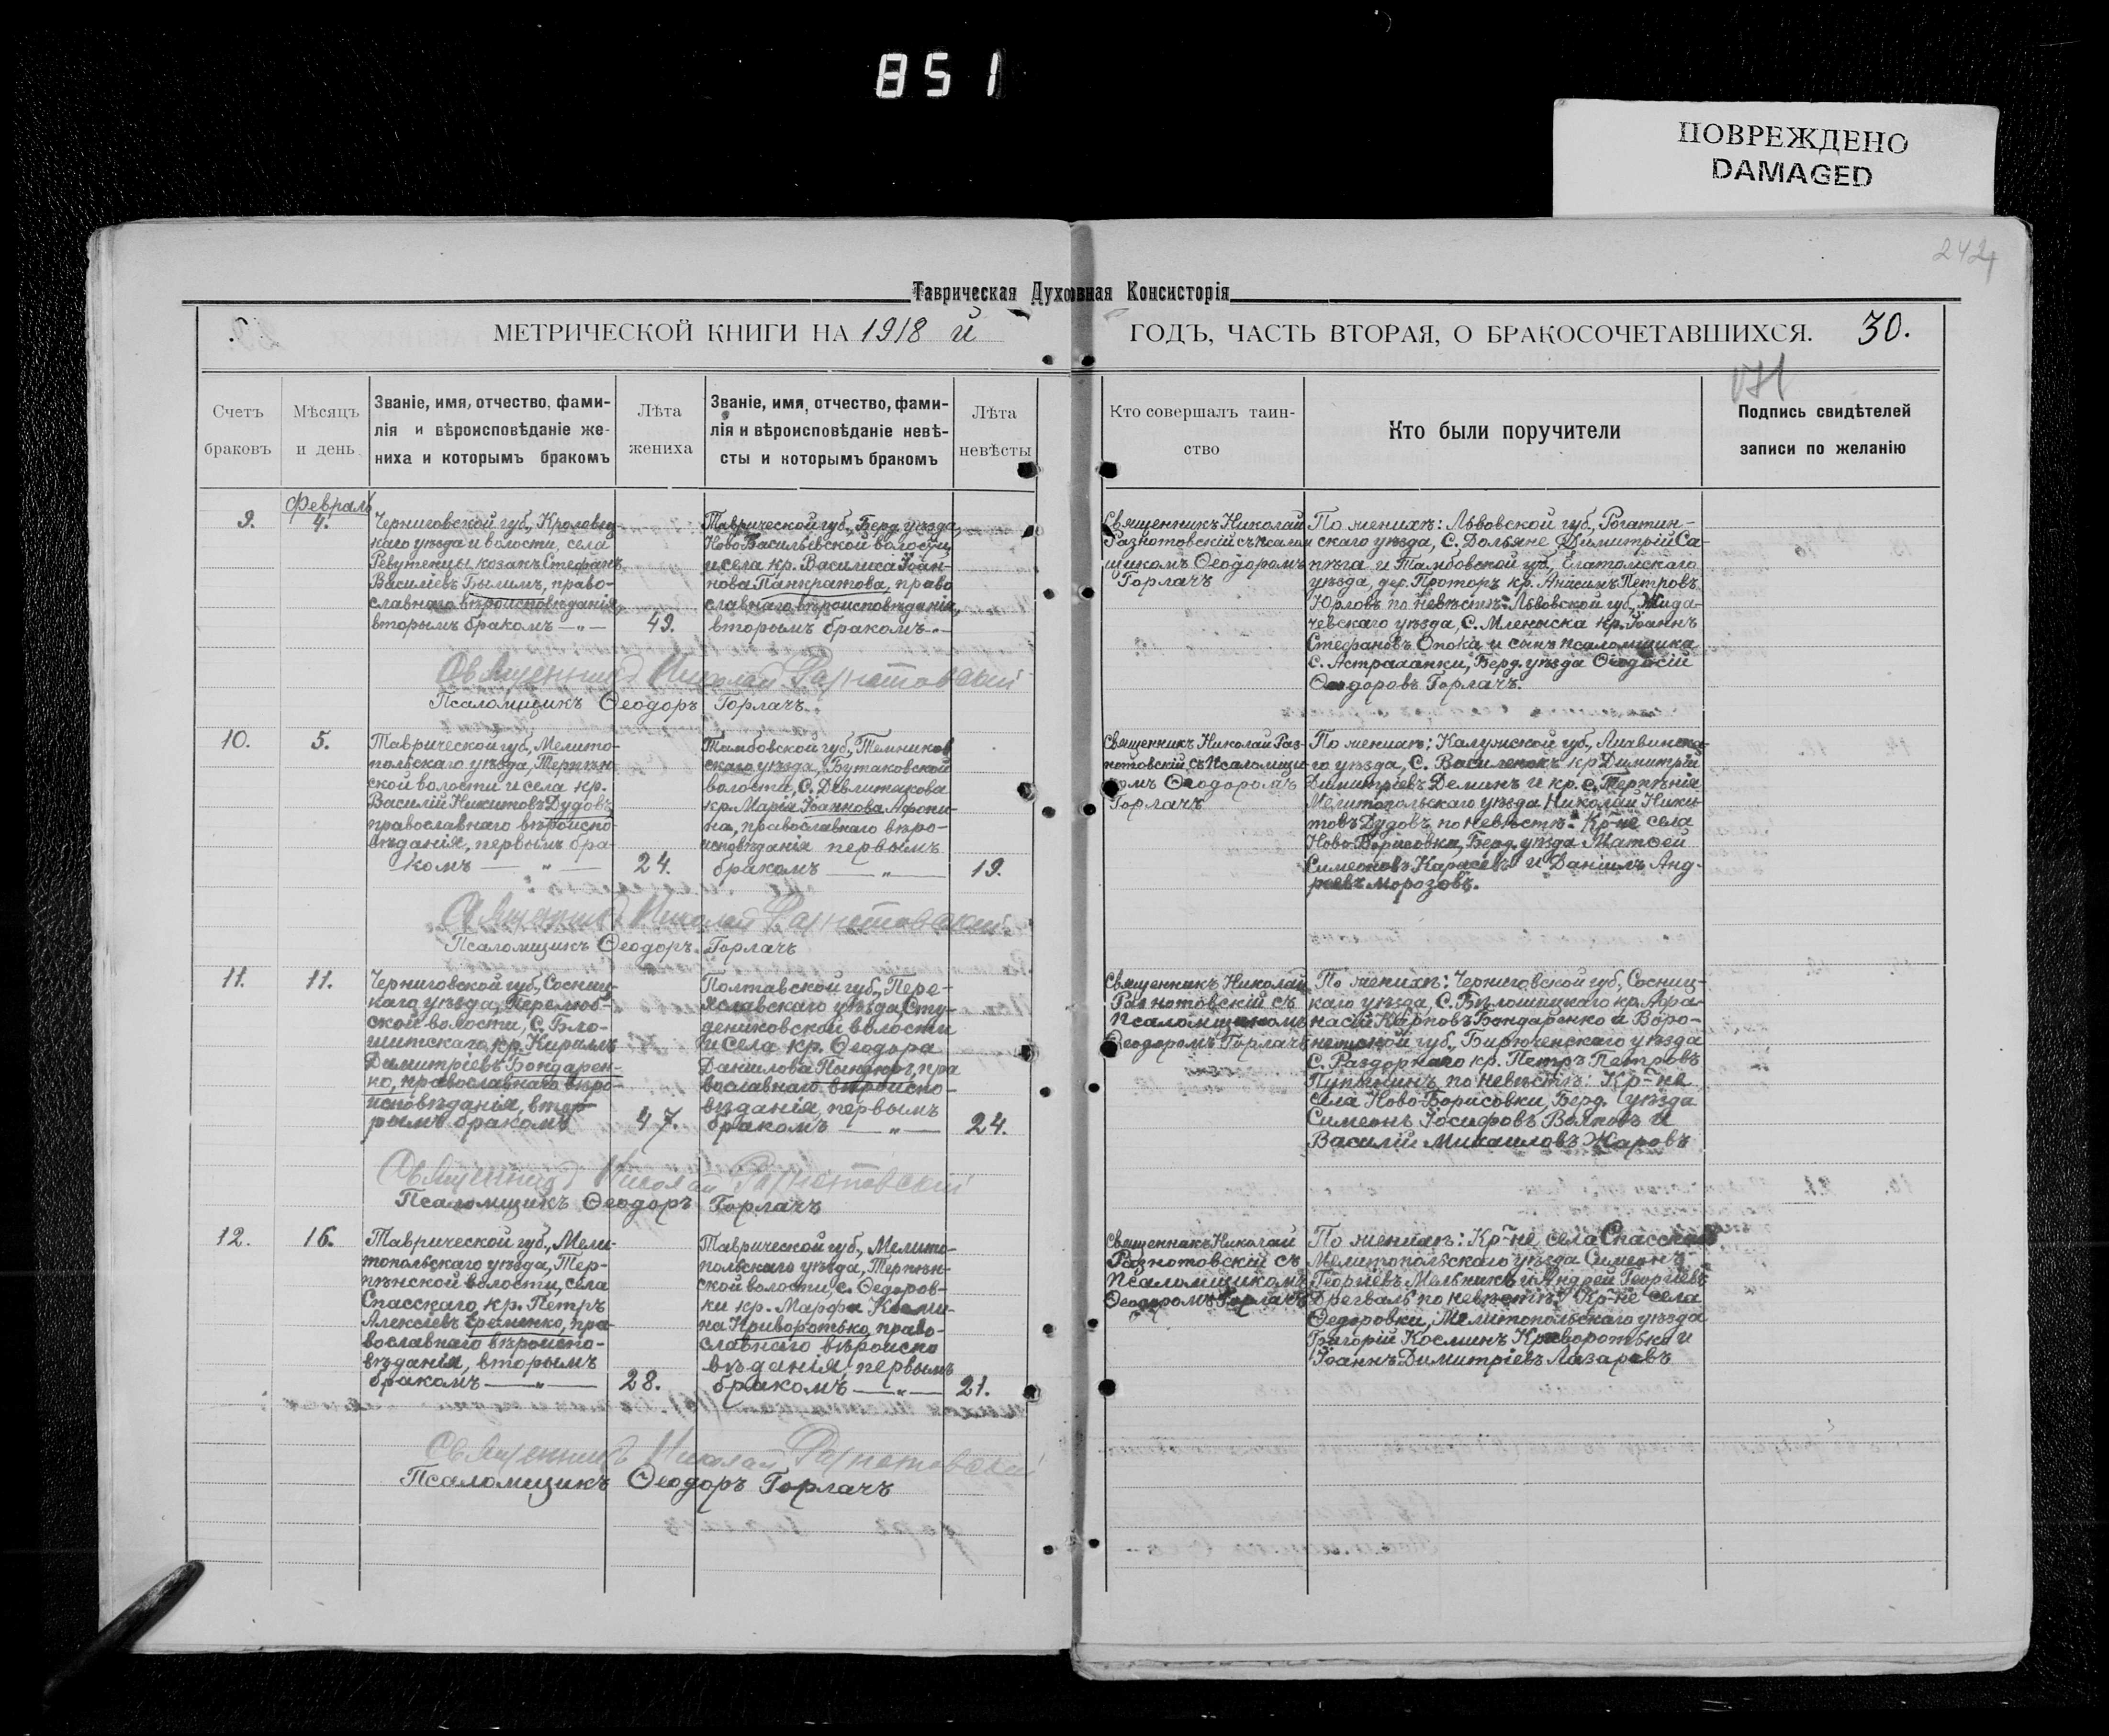 851
ПОВРЕЖДЕНО
DAMAGED
Таврическая Духовная Консисторія
МЕТРИЧЕСКОЙ КНИГИ НА 1918 й
ГОДЪ, ЧАСТЬ ВТОРАЯ, О БРАКОСОЧЕТАВШИХСЯ. 30.
Счетъ
браковъ
Мѣсяцъ
и день
Званіе, имя, отчество, фами-
лія и вѣроисповѣданіе же-
ниха и которымъ бракомъ
Лѣта
жениха
Званіе, имя, отчество, фами-
лія и вѣроисповѣданіе невѣ-
сты и которымъ бракомъ
Лѣта
невѣсты
Кто совершалъ таин-
ство
Кто были поручители
Подпись свидѣтелей
записи по желанію
9.
Февраль
4.
Черниговской губ., Кролевец-
каго уѣзда и волости, села
Ревутенцы козакъ Стефанъ
Василіевъ Былимъ, право-
славнаго вѣроисповѣданія,
вторымъ бракомъ —„—
49.
Таврической губ., Берд. уѣзда,
Ново Васильевской волости,
и села кр. Василиса Іоан-
нова Панкратова, право
славнаго вѣроисповѣданія,
вторымъ бракомъ-„-
Священникъ Николай
Разнотовскій съ псалом
щикомъ Ѳеодоромъ
Горлачъ
По женихѣ: Львовской губ., Рогатин-
скаго уѣзда, С. Дольяне Димитрій Са-
пѣга и Тамбовской губ., Елатомскаго
уѣзда, дер. Проторъ кр. Анисимъ Петровъ
Юрловъ по невѣстѣ: Львовской губ., Жида-
чевскаго уѣзда, С. Млыныска кр. Іоаннъ
Стефановъ Опока и сынъ псаломщика
С. Астраханки, Берд. уѣзда Ѳеодосій
Ѳеодоровъ Горлачъ.
Священникъ Николай Разнотовскій
Псаломщикъ Ѳеодоръ Горлачъ.
10.
5.
Таврической губ., Мелито-
польскаго уѣзда, Терпѣн-
ской волости и села кр.
Василій Никитовъ Дудовъ
православнаго вѣроиспо-
вѣданія, первымъ бра-
комъ — „ —
24.
Тамбовской губ., Темников
скаго уѣзда, Бутаковской
волости, С. Девлитякова
кр. Марія Іоаннова Афони-
на, православнаго вѣро-
исповѣданія первымъ
бракомъ — „ —
19.
Священникъ Николай Раз-
нотовскій съ Псаломщи-
комъ Ѳеодоромъ
Горлачъ
По женихѣ: Калужской губ., Лихвинска-
го уѣзда, С. Василенокъ кр Димитрій
Димитріевъ Деминъ и кр. с. Терпѣнія
Мелитопольскаго уѣзда Николай Ники-
товъ Дудовъ по невѣстѣ: Кр-не села
Ново Борисовки, Берд. уѣзда Матѳей
Симеоновъ Карасевъ и Даніилъ Анд-
реевъ Морозовъ.
Священникъ Николай Разнотовскій
Псаломщикъ Ѳеодоръ. Горлачъ
11.
11.
Черниговской губ., Сосниц-
каго уѣзда, Перелюб-
ской волости, С. Бло-
шитскаго, кр. Кириллъ
Димитріевъ Бондарен-
ко, православнаго вѣро-
исповѣданія, вто-
рымъ бракомъ
47.
Полтавской губ., Пере-
яславскаго уѣзда, Сту-
дениковской волости
и села кр. Ѳеодора
Даніилова, пра
вославнаго вѣроиспо-
вѣданія, первымъ
бракомъ — „ —
24.
Священникъ Николай
Разнотовскій съ
Псаломщикомъ
Ѳеодоромъ Горлачъ
По женихѣ: Черниговской губ., Сосниц-
каго уѣзда, С. Бѣлошицкаго кр. Афа-
насій Карповъ Бондаренко и Воро-
нежской губ., Бирюченскаго уѣзда
С. Раздорнаго кр. Петръ Петровъ
по невѣстѣ: Кр-не
села Ново-Борисовки, Берд. уѣзда
Симеонъ Іосифовъ Волковъ и
Василій Михаиловъ Жаровъ
Священникъ Николай Разнотовскій
Псаломщикъ Ѳеодоръ Горлачъ
12.
16.
Таврической губ., Мели-
топольскаго уѣзда, Тер-
пѣнской волости, села
Спасскаго, кр. Петръ
Алексіевъ Еременко, пра-
вославнаго вѣроиспо-
вѣданія, вторымъ
бракомъ — „ —
28.
Таврической губ., Мелито-
польскаго уѣзда, Терпѣн-
ской волости, с. Ѳедоров-
ки кр. Марфа Косми-
на Криворотько, право-
славнаго вѣроиспо
вѣданія, первымъ
бракомъ —„—
21.
Священникъ Николай
Разнотовскій съ
Псаломщикомъ
Ѳеодоромъ Горлачъ
По женихѣ: Кр-не села Спасскаго
Мелитопольскаго уѣзда Симеонъ
Георгіевъ Мельникъ и Андрей Георгіевъ
Дрегваль по невѣстѣ: Кр-не села
Ѳедоровки, Мелитопольскаго уѣзда
Григорій Косминъ Криворотько и
Іоаннъ Димитріевъ Лазаревъ
Священникъ Николай Разнотовскій
Псаломщикъ Ѳеодоръ Горлачъ